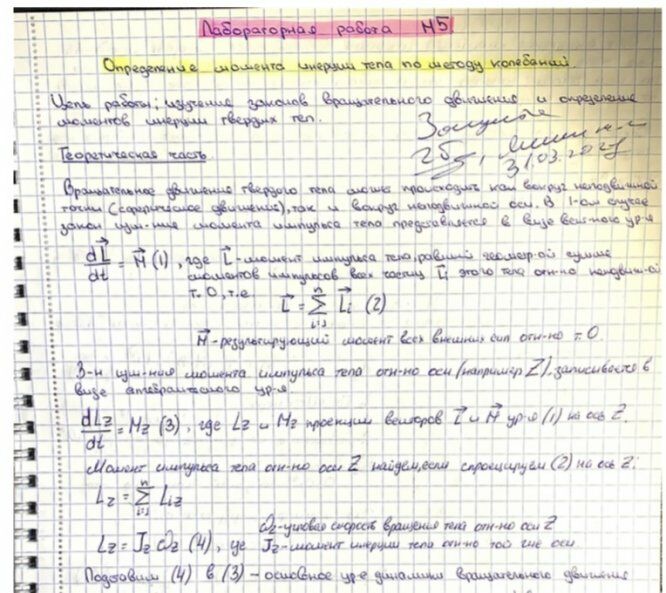 Лабораторная работа №5
Определение момента инерции тела по методу колебаний.
Цель работы: изучение законов вращательного движения и определение
моментов инерции твердых тел.
Зачтено
31.03.2021
Теоретическая часть.
Вращательное движение твердого тела может происходить как вокруг неподвижной
точки (сферическое движение), так и вокруг неподвижной оси. В 1-ом случае
закон изм-ния момента импульса тела представляется в виде век-ного ур-я
dL⃗/dt = M⃗ (1), где L⃗-момент импульса тела, равный геометр-ой сумме
моментов импульсов всех частиц L⃗i этого тела отн-но неподвиж-ой
т. О, т.е.
L⃗ = Σⁿᵢ₌₁ L⃗i (2)
M⃗-результирующий момент всех внешних сил отн-но т. О.
З-н изм-ния момента импульса тела отн-но оси (например Z), записывается в
виде алгебраического ур-я.
dLz/dt = Mz (3), где Lz и Mz проекции векторов L⃗ и M⃗ ур-я (1) на ось Z.
Момент импульса тела отн-но оси Z найдем, если спроецируем (2) на ось Z:
Lz = Σⁿᵢ₌₁ Liz
ωz-угловая скорость вращения тела отн-но оси Z
Lz = Jz ωz (4), где Jz-момент инерции тела отн-но той же оси
Подставим (4) в (3) - основное ур-е динамики вращательного движения